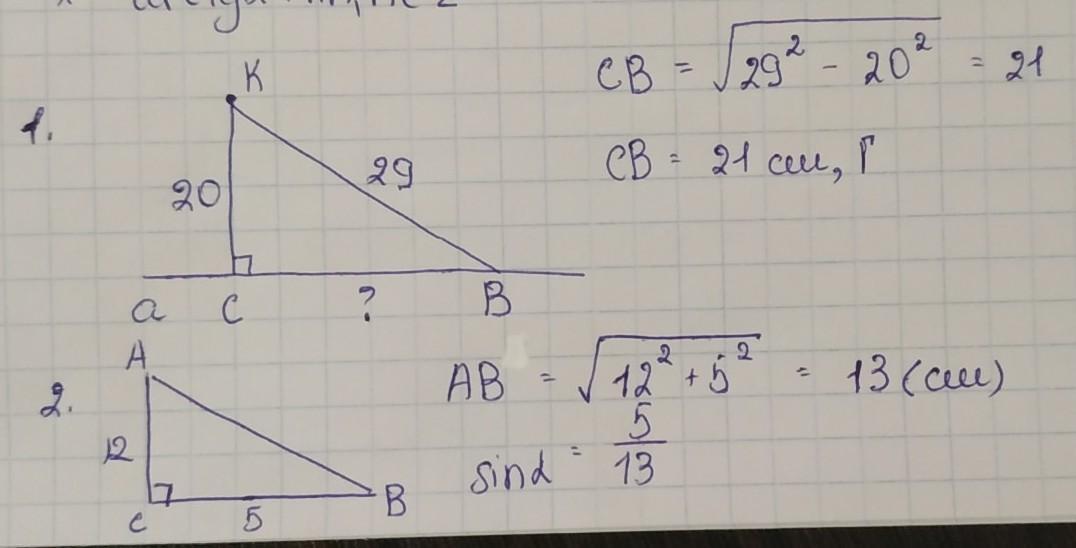 1.
K
20
29
a C ? B
CB = √(29² - 20²) = 21
CB = 21 см, Г
2.
A
12
C 5 B
AB = √(12² + 5²) = 13 (см)
sinα = 5/13